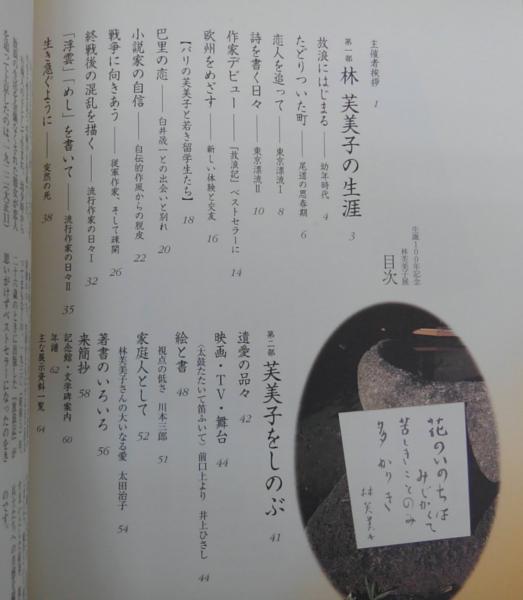 生誕100年記念
林芙美子展
目次
主催者挨拶 1
第一部 林 芙美子の生涯 3
放浪にはじまる——幼年時代 4
たどりついた町——尾道の思春期 6
恋人を追って——東京漂流Ⅰ 8
詩を書く日々——東京漂流Ⅱ 10
作家デビュー——「放浪記」ベストセラーに 14
欧州をめざす——新しい体験と交友 16
【パリの芙美子と若き留学生たち】 18
巴里の恋——白井晟一との出会いと別れ 20
小説家の自信——自伝的作風からの脱皮 22
戦争に向きあう——従軍作家、そして疎開 26
終戦後の混乱を描く——流行作家の日々Ⅰ 32
「浮雲」「めし」を書いて——流行作家の日々Ⅱ 35
生き急ぐように——突然の死 38
第二部 芙美子をしのぶ 41
遺愛の品々 42
映画・TV・舞台 44
〈太鼓たたいて笛ふいて〉前口上より 井上ひさし 44
絵と書 48
視点の低さ 川本三郎 51
家庭人として 52
林芙美子さんの大いなる愛 太田治子 54
著書のいろいろ 56
来簡抄 58
記念館・文学碑案内 60
年譜 62
主な展示資料一覧 64
花のいのちは
みじかくて
苦しきことのみ
多かりき
林芙美子
思いがけずベストセラーになったのをき
のです。